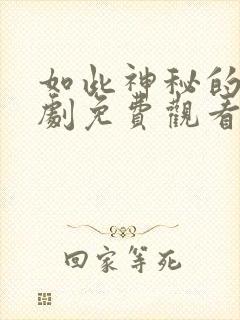 如此神秘的
劇免費觀看
回家等死